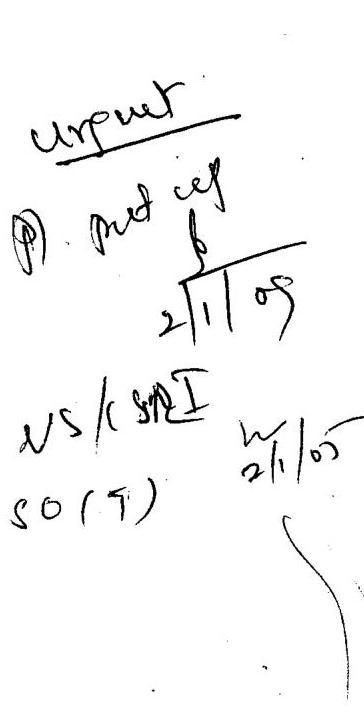 Urgent
(P). put up
2/1/05
US/CSRI
2/1/05
SO(T)